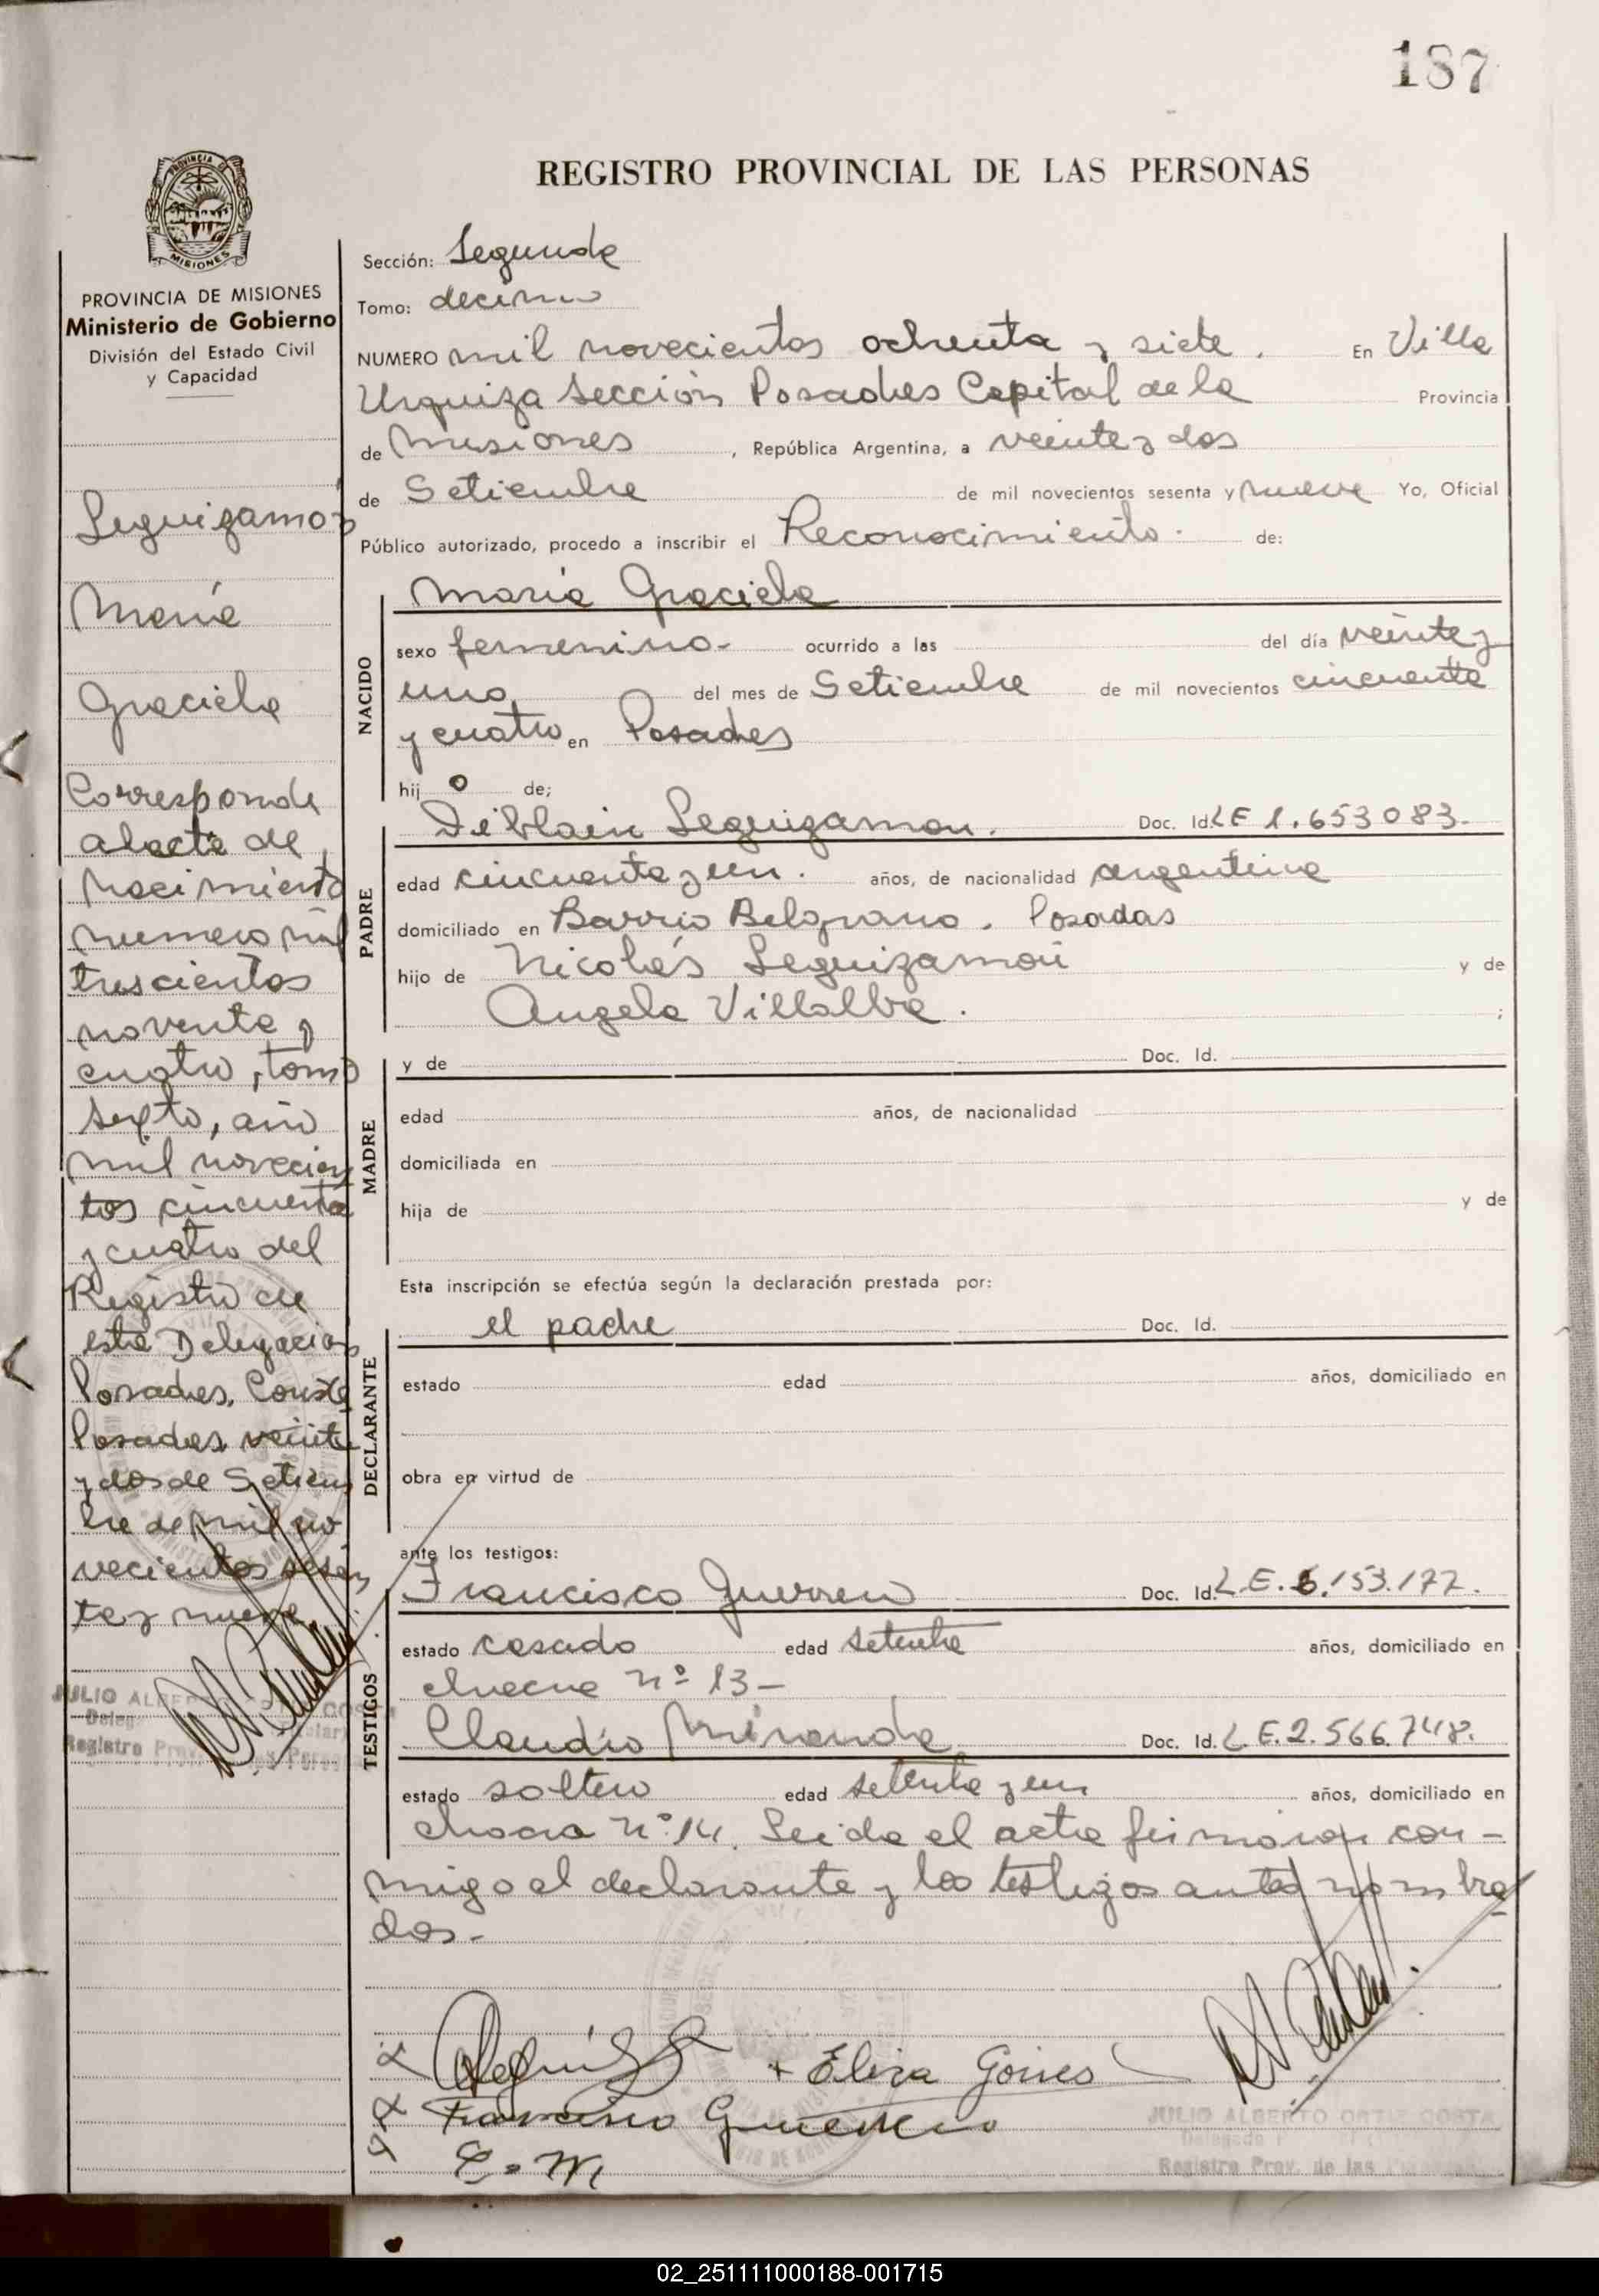 187
REGISTRO PROVINCIAL DE LAS PERSONAS
MISIONES
PROVINCIA DE MISIONES
Ministerio de Gobierno
División del Estado Civil
y Capacidad
Leguizamon
María
Graciela
Corresponde
al acta de
Nacimiento
numero mil
trescientos
noventa y
cuatro, tomo
sexto, año
mil novecien
tos cincuenta
y cuatro del
Registro de
esta Delegacion
Posadas. Conste
Posadas veinte
y dos de Setiem
bre de mil no
vecientos sesen
ta y nueve
JULIO ALBERTO
Registro
Sección: Segunda
Tomo: decimo
NUMERO mil novecientos ochenta y siete. En Villa
Urquiza Sección Posadas Capital de la Provincia
de Misiones, República Argentina, a veinte y dos
de Setiembre de mil novecientos sesenta y nueve Yo, Oficial
Público autorizado, procedo a inscribir el Reconocimiento. de:
NACIDO
María Graciela
sexo femenino- ocurrido a las del día veinte y
uno del mes de Setiembre de mil novecientos cincuenta
y cuatro en Posadas
hij o de;
PADRE
Leguizamon. Doc. Id. LE 1.653083-
edad cincuenta y un. años, de nacionalidad argentina
domiciliado en Barrio Belgrano. Posadas
hijo de Nicolás Leguizamón y de
Angela Villalba. ;
MADRE
y de Doc. Id.
edad años, de nacionalidad
domiciliada en
hija de y de
Esta inscripción se efectúa según la declaración prestada por:
DECLARANTE
el padre Doc. Id.
estado edad años, domiciliado en
obra en virtud de
ante los testigos:
TESTIGOS
Francisco Guerrero Doc. Id. L.E. 6.153.177.
estado casado edad setenta años, domiciliado en
chacra nº 13-
Claudio Miranda Doc. Id. L.E. 2.566.748.
estado soltero edad setenta y un años, domiciliado en
chacra nº 14. Leida el acta firmaron con-
migo el declarante y los testigos antes nombra-
dos.-
+ Elisa Goires
Francisco Guerrero
C. M.
JULIO ALBERTO ORTIZ COSTA
Registro Prov. de las
02_251111000188-001715